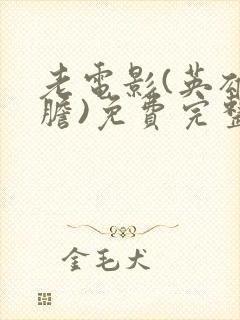 老電影(英雄
膽)免費完整
金毛犬